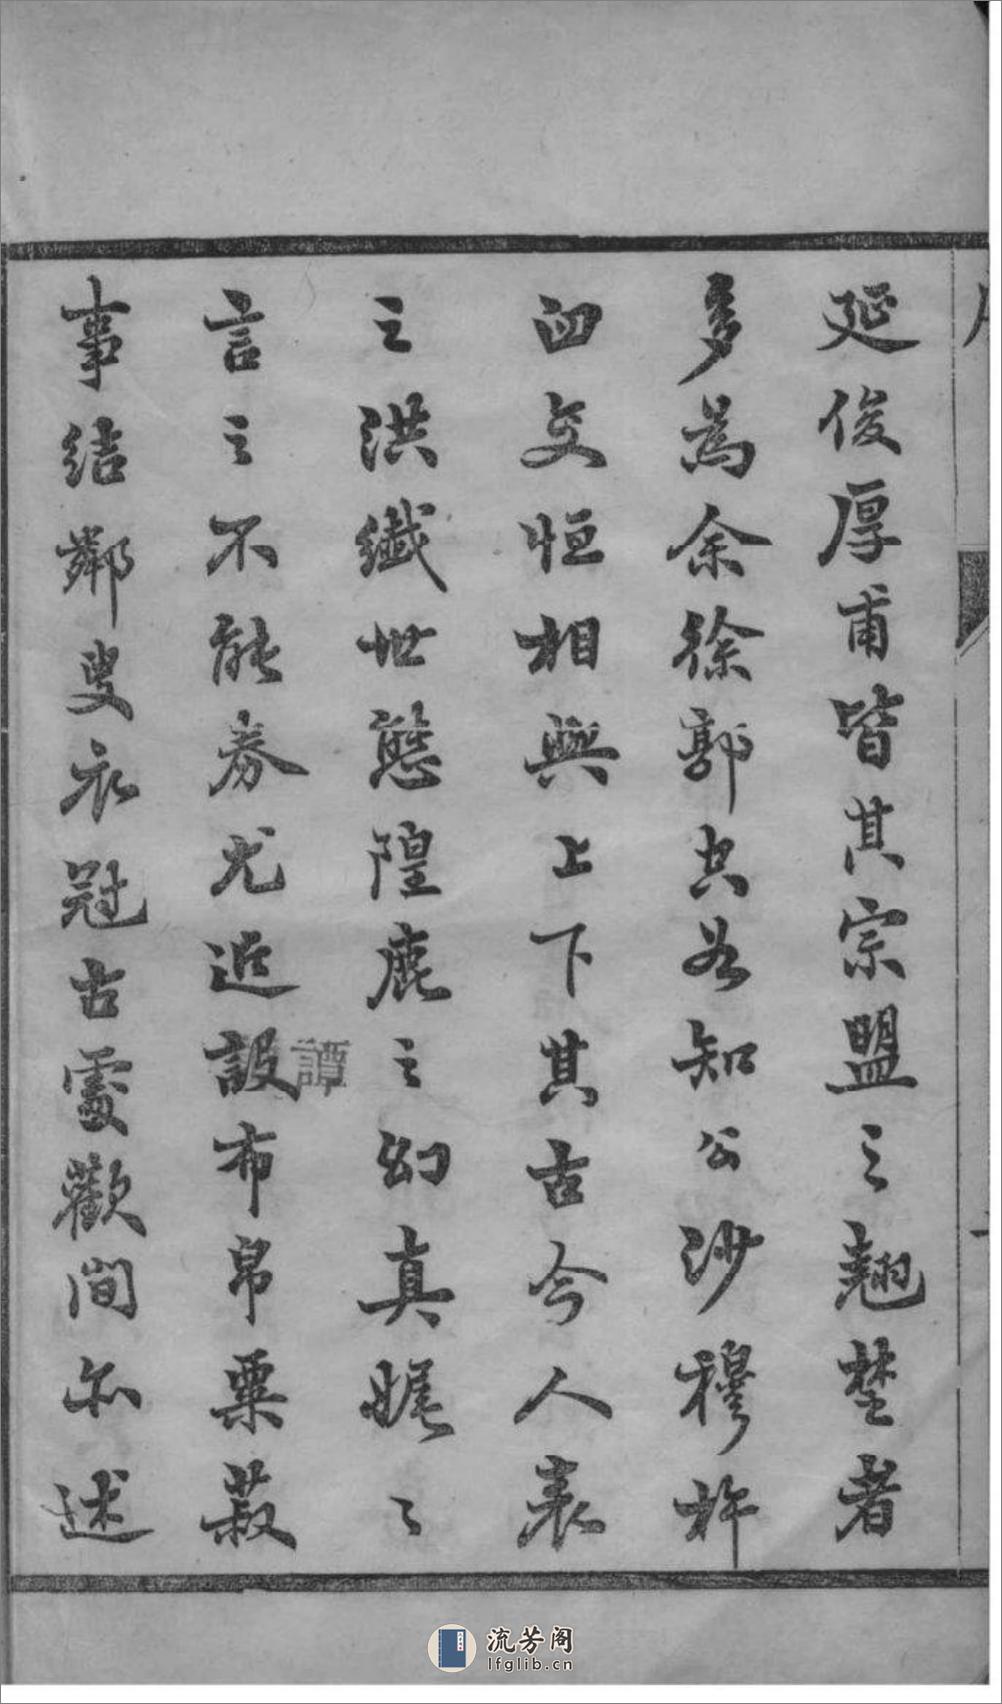 延俊厚甫皆其宗盟之翹楚者
多為余徐郭出者知公沙穆杵
臼交恒相與上下其古今人表
之洪纖世態隍鹿之幻真娓〻
言之不能券尤近設布帛粟菽
譚
事結鄰叟衣冠古處歡間尓述
流芳阁
lfglib.cn